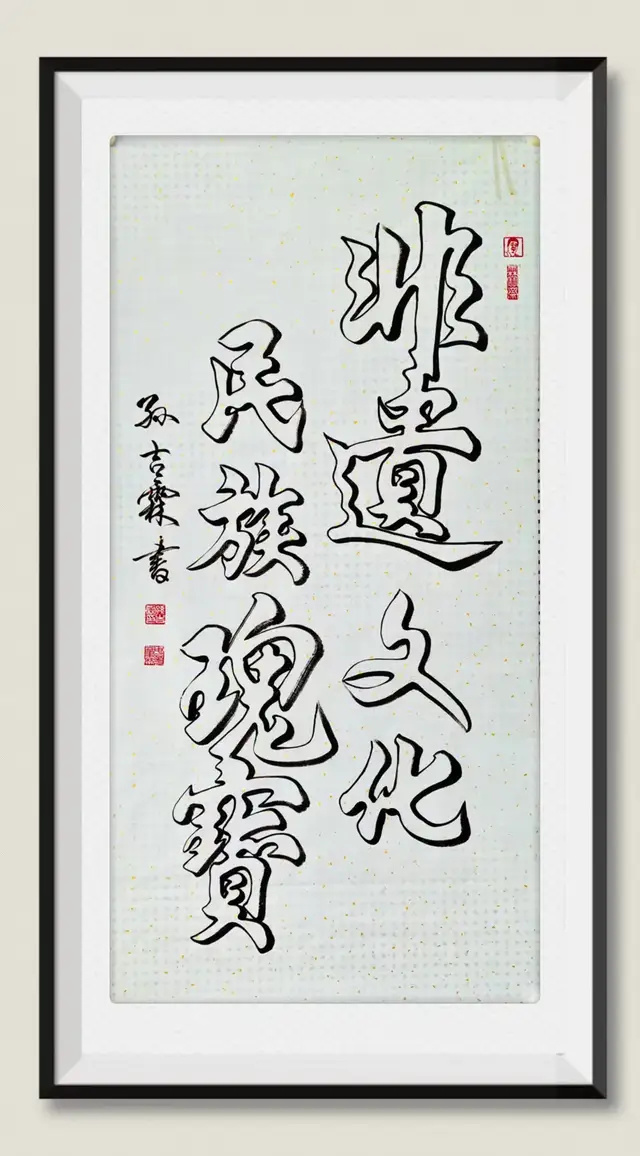 非遺文化
民族瑰寶
孙吉霖書